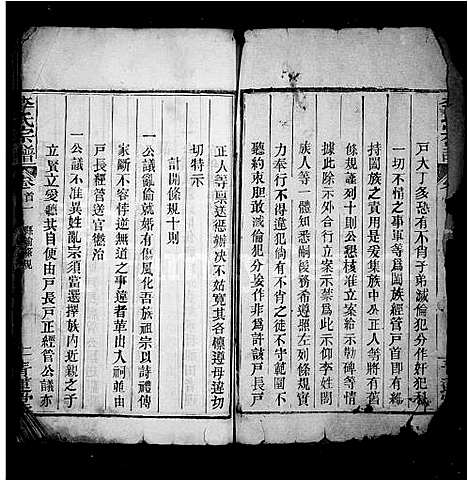 戶大丁多恐有不肖子弟滅倫犯分作奸犯科
一切不情之事重等爲闔族經管戶首卽有維
持闔族之責用是爰集族中公正人等將有舊
條規謹列十則公懇核准立案給示勒碑等情
據此除示外合行立案示禁爲此示仰李姓闔
族人等一體知悉嗣後務希遵照後列條規實
力奉行不得違犯倘有不肖之徒不守範圍不
聽約束胆敢滅倫犯分姿作非爲許該戶長戶
正人等呈送懲辦决不姑寬其各凜遵毋違切
切特示
計開條規十則
一公議亂倫就婚有傷風化吾族祖宗以詩禮傳
家斷不容悖逆無道之事違者革出入祠並由
戶長經管送官懲治
一公議不准異姓亂宗須當選擇族內近親之子
立賢立愛聽其自便由戶長戶正經管公議亦
李氏宗譜
卷首